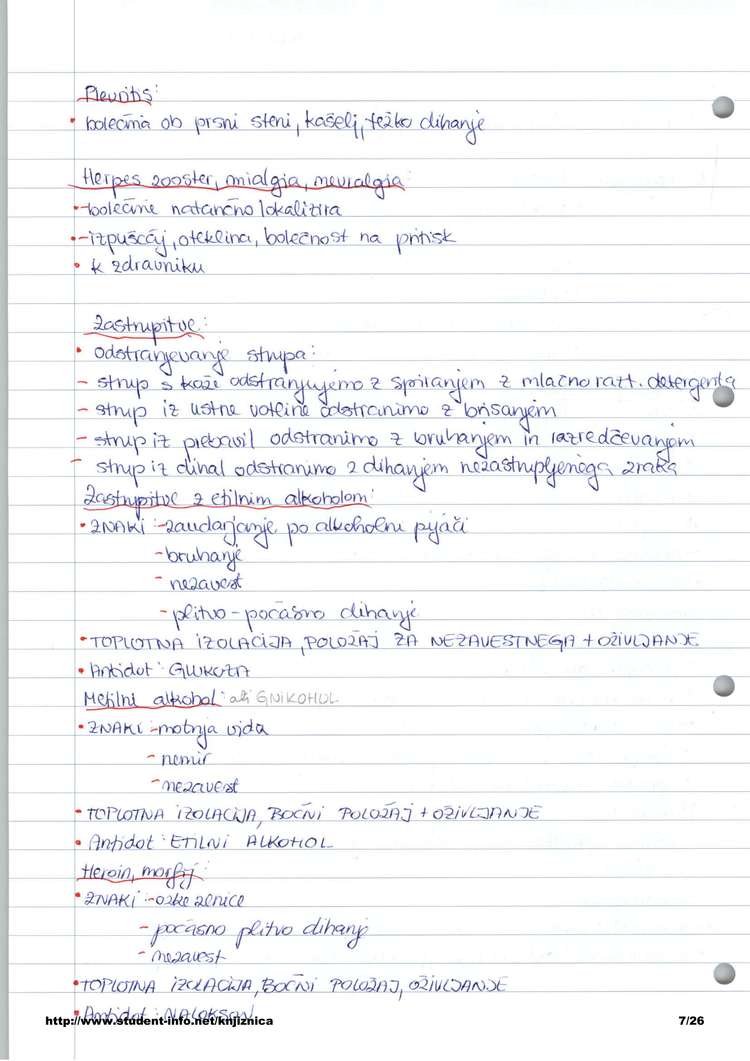 Pleuritis:
• bolečina ob prsni steni, kašelj, težko dihanje
Herpes zooster, mialgia, nevralgia:
•-bolečine natančno lokalizira
•-izpuščaj, oteklina, bolečnost na pritisk
• k zdravniku
Zastrupitve:
• Odstranjevanje strupa:
- strup s kože odstranjujemo z spiranjem z mlačno razt. detergenta
- strup iz ustne votline odstranimo z brisanjem
- strup iz prebavil odstranimo z bruhanjem in razredčevanjem
- strup iz dihal odstranimo z dihanjem nezastrupljenega zraka
Zastrupitve z etilnim alkoholom:
• ZNAKI:-zaudarjanje po alkoholni pijači
-bruhanje
- nezavest
- plitvo-počasno dihanje
• TOPLOTNA IZOLACIJA, POLOŽAJ ZA NEZAVESTNEGA + OŽIVLJANJE
• Antidot: GLUKOZA
Metilni alkohol: ali GNIKOHOL
• ZNAKI:-motnja vida
- nemir
- nezavest
• TOPLOTNA IZOLACIJA, BOČNI POLOŽAJ + OŽIVLJANJE
• Antidot: ETILNI ALKOHOL
Heroin, morfij:
• ZNAKI:-ozke zenice
- počasno plitvo dihanje
- nezavest
• TOPLOTNA IZOLACIJA, BOČNI POLOŽAJ, OŽIVLJANJE
• Antidot: NALOKSON
http://www.student-info.net/knjiznica
7/26